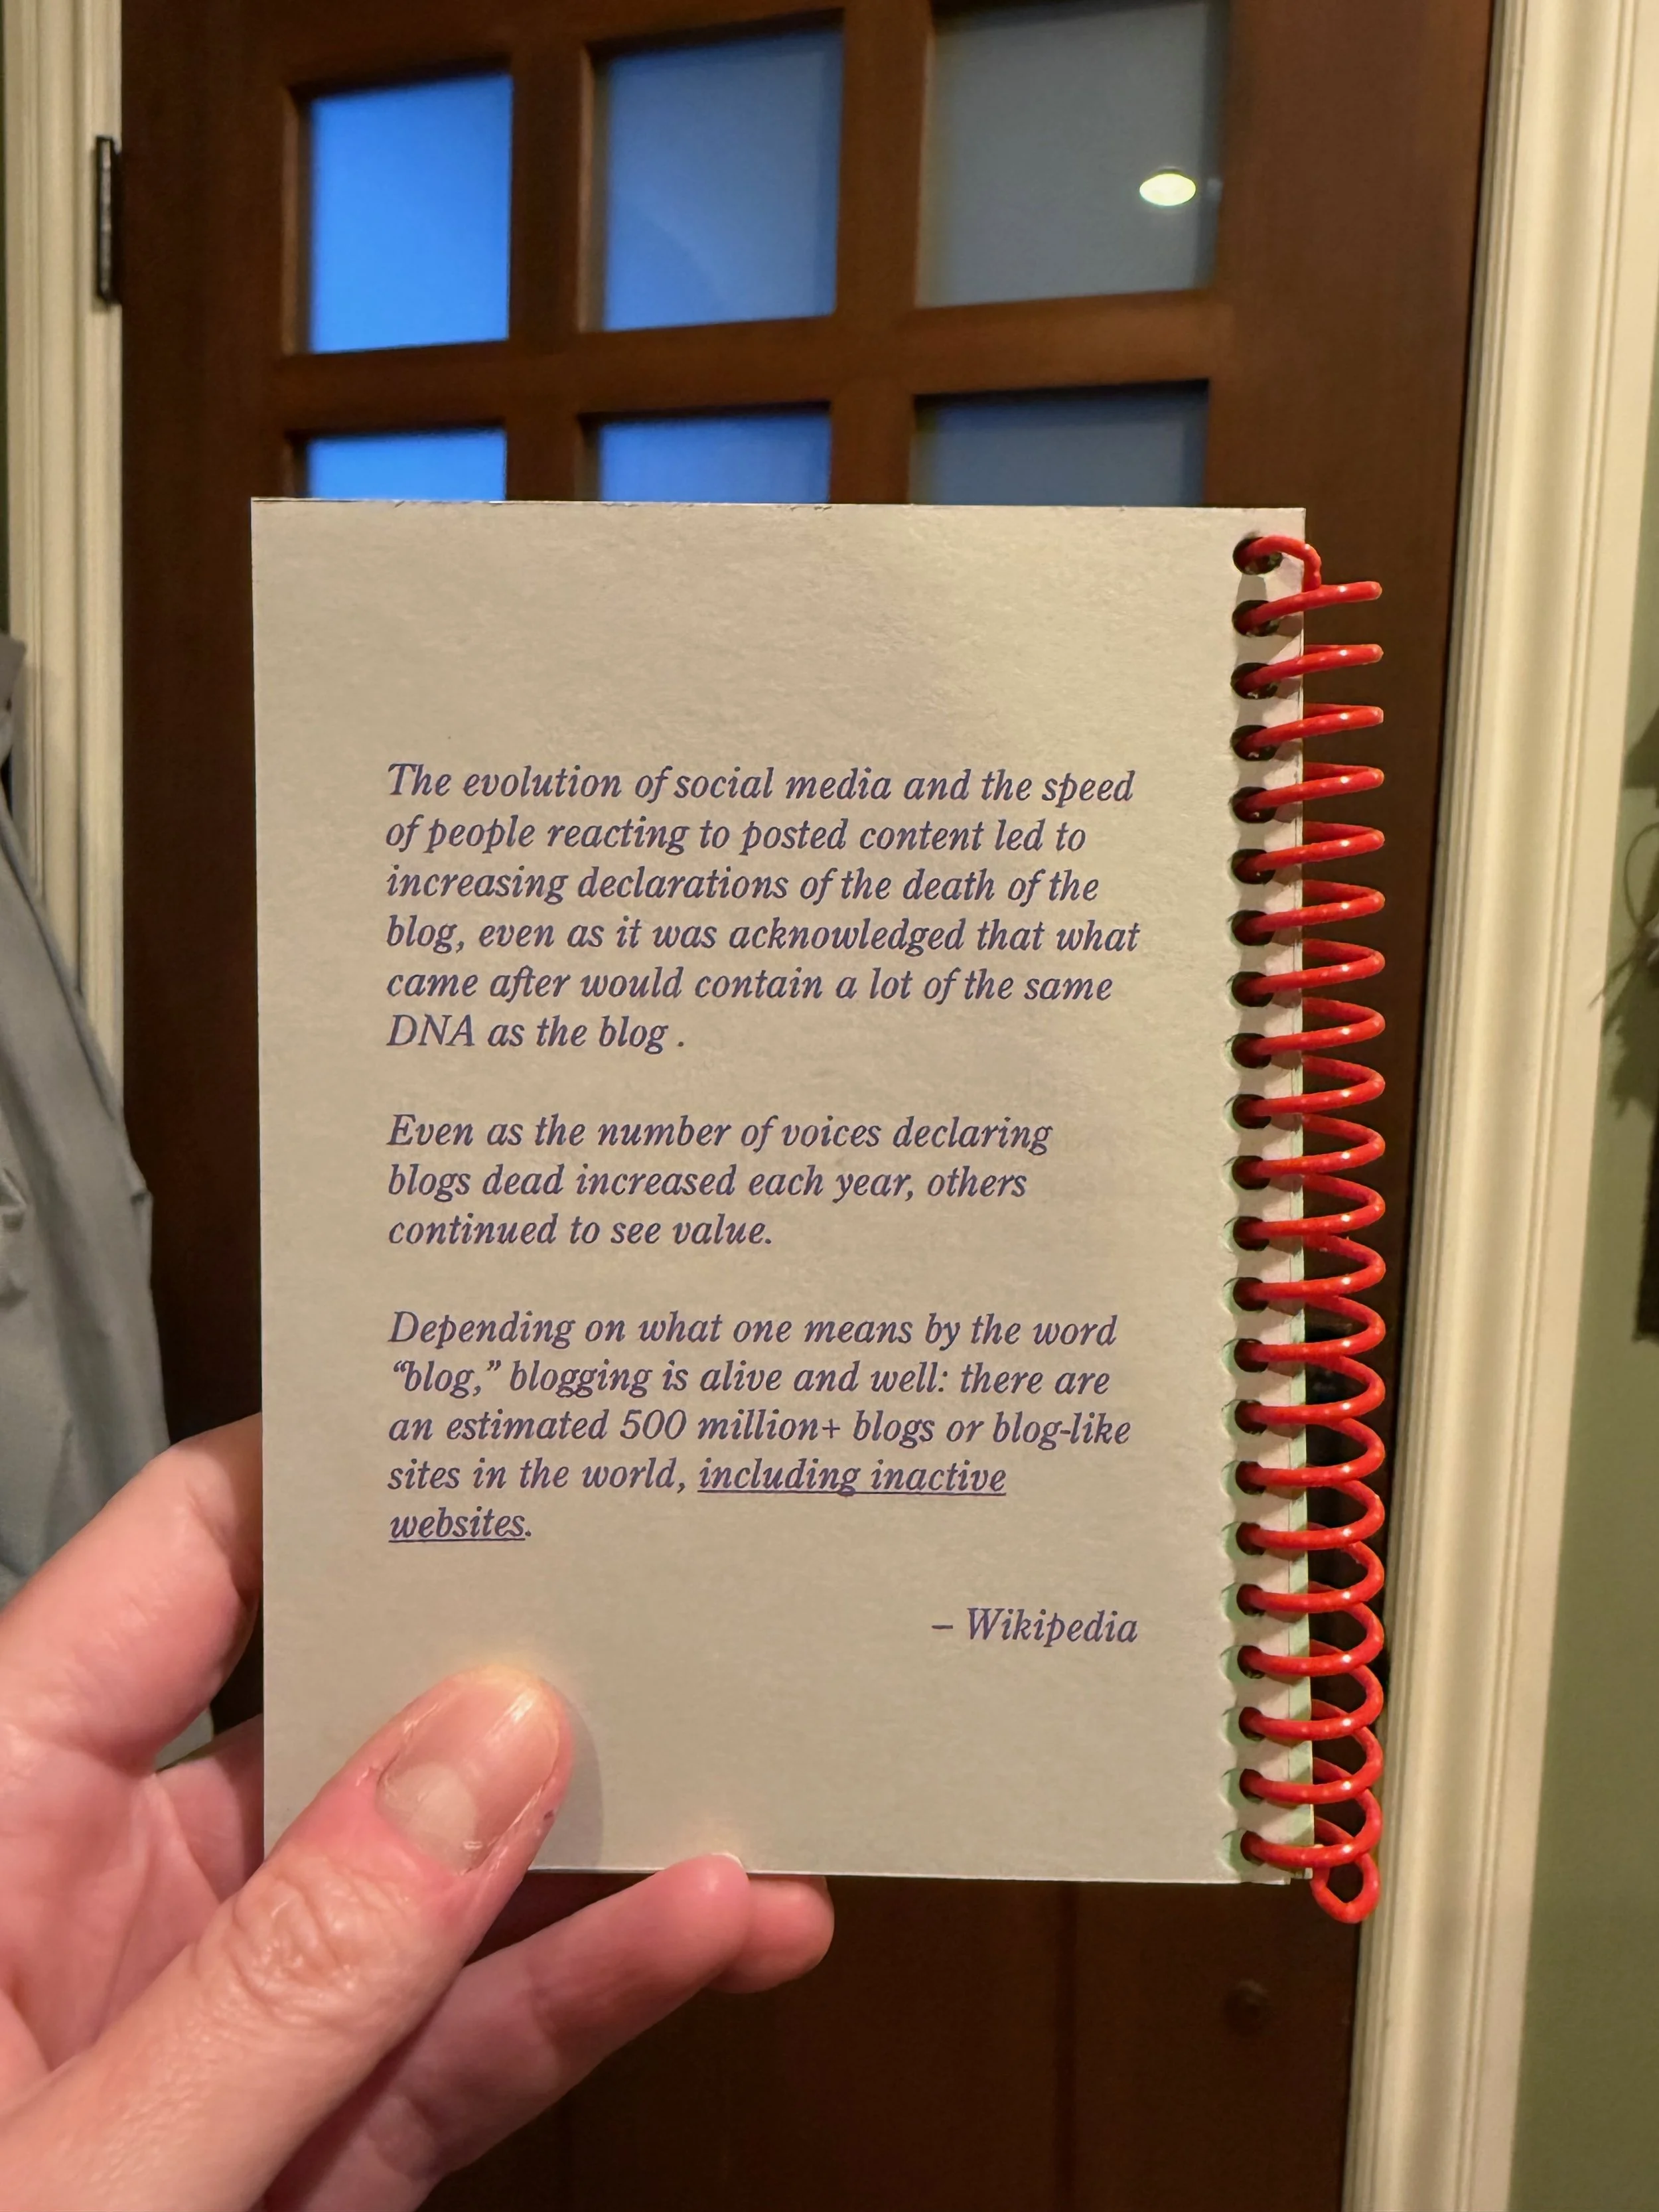 The evolution of social media and the speed
of people reacting to posted content led to
increasing declarations of the death of the
blog, even as it was acknowledged that what
came after would contain a lot of the same
DNA as the blog .
Even as the number of voices declaring
blogs dead increased each year, others
continued to see value.
Depending on what one means by the word
“blog,” blogging is alive and well: there are
an estimated 500 million+ blogs or blog-like
sites in the world, including inactive
websites.
– Wikipedia